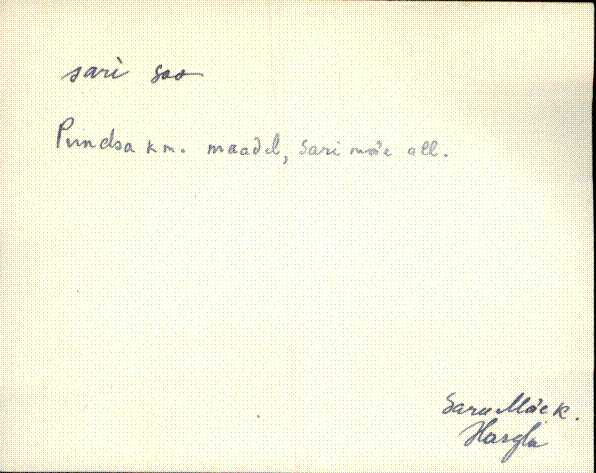 sari soo
Pundsa k m. maadel, Sari mäe all.
Saru Mäe k.
Hargla